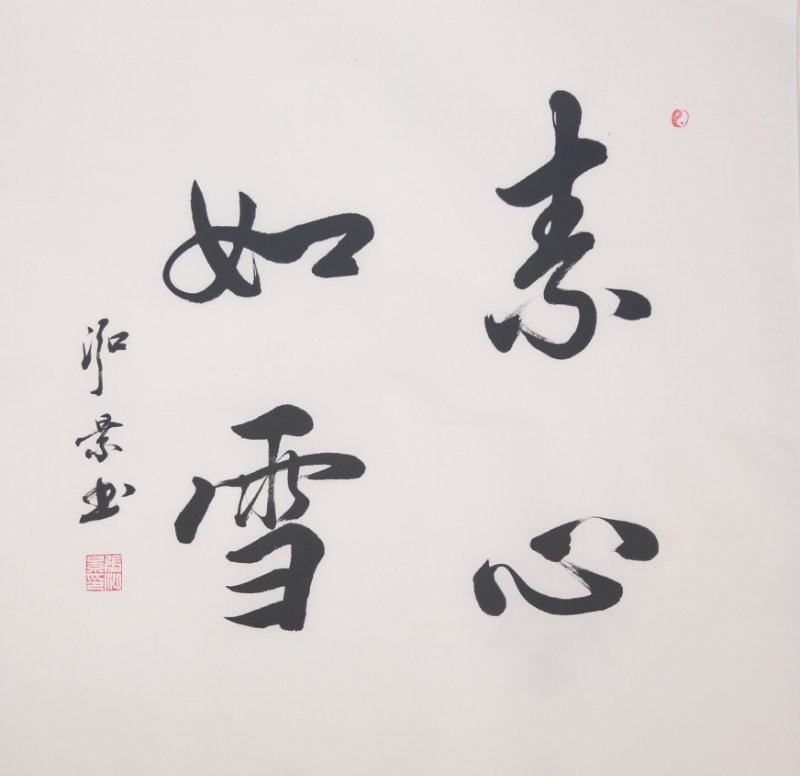 素心
如雪
泓景书